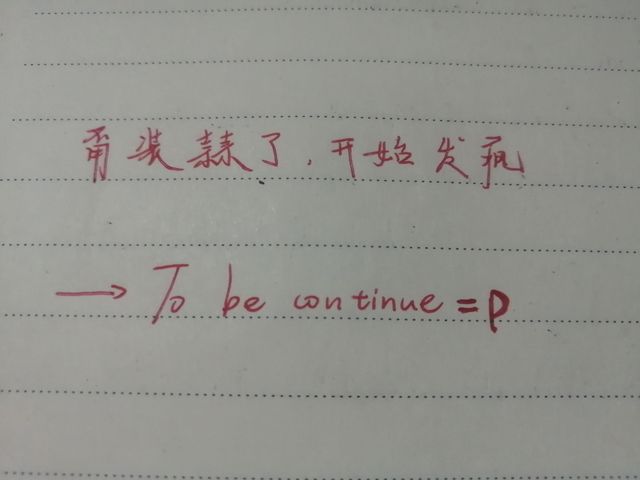 甭装蒜了,开始发疯
→ To be continue =P